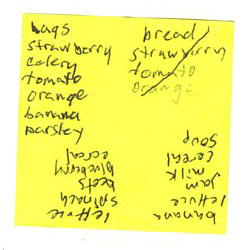 bags
strawberry
celery
tomato
orange
banana
parsley
bread
strawberry
tomato
orange
banana
lettuce
jam
milk
cereal
soup
lettuce
spinach
beets
blueberry
cereal